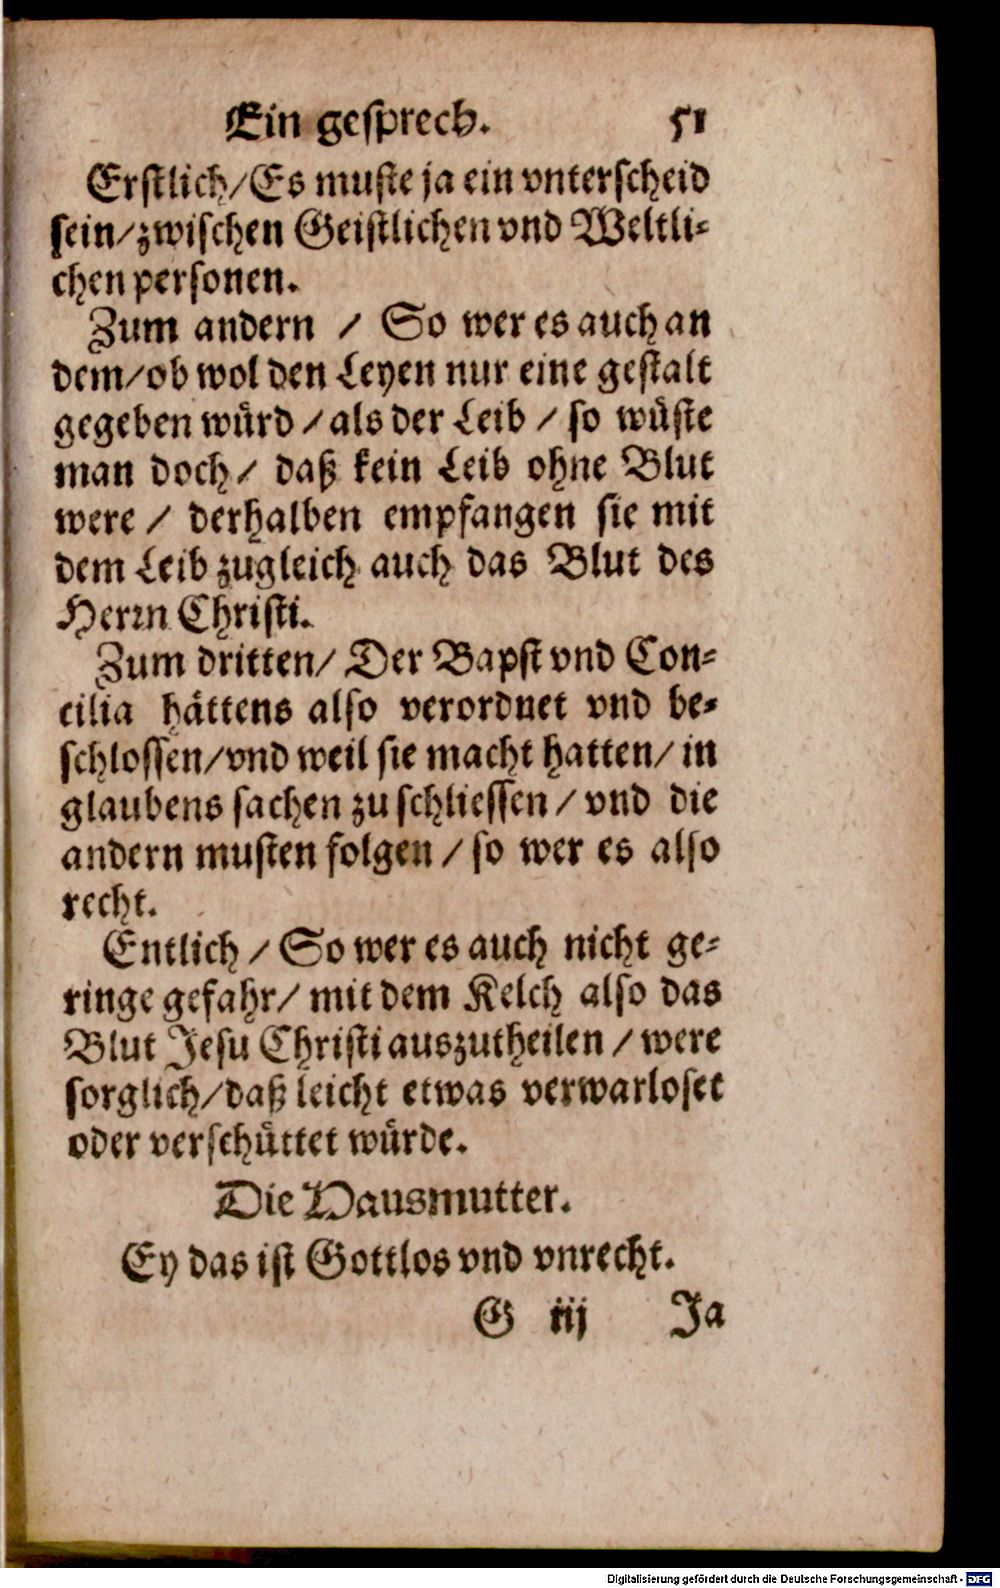 Ein gesprech. 51
Erstlich/Es muste ja ein vnterscheid
sein/zwischen Geistlichen vnd Weltli-
chen personen.
Zum andern / So wer es auch an
dem/ob wol den Leyen nur eine gestalt
gegeben würd / als der Leib / so wüste
man doch / daß kein Leib ohne Blut
were / derhalben empfangen sie mit
dem Leib zugleich auch das Blut des
Herrn Christi.
Zum dritten/ Der Bapst vnd Con-
cilia hättens also verordnet vnd be-
schlossen/vnd weil sie macht hatten/ in
glaubens sachen zu schliessen / vnd die
andern musten folgen / so wer es also
recht.
Entlich / So wer es auch nicht ge-
ringe gefahr/ mit dem Kelch also das
Blut Jesu Christi auszutheilen / were
sorglich/daß leicht etwas verwarloset
oder verschüttet würde.
Die Hausmutter.
Ey das ist Gottlos vnd vnrecht.
G iij Ja
Digitalisierung gefördert durch die Deutsche Forschungsgemeinschaft - DFG